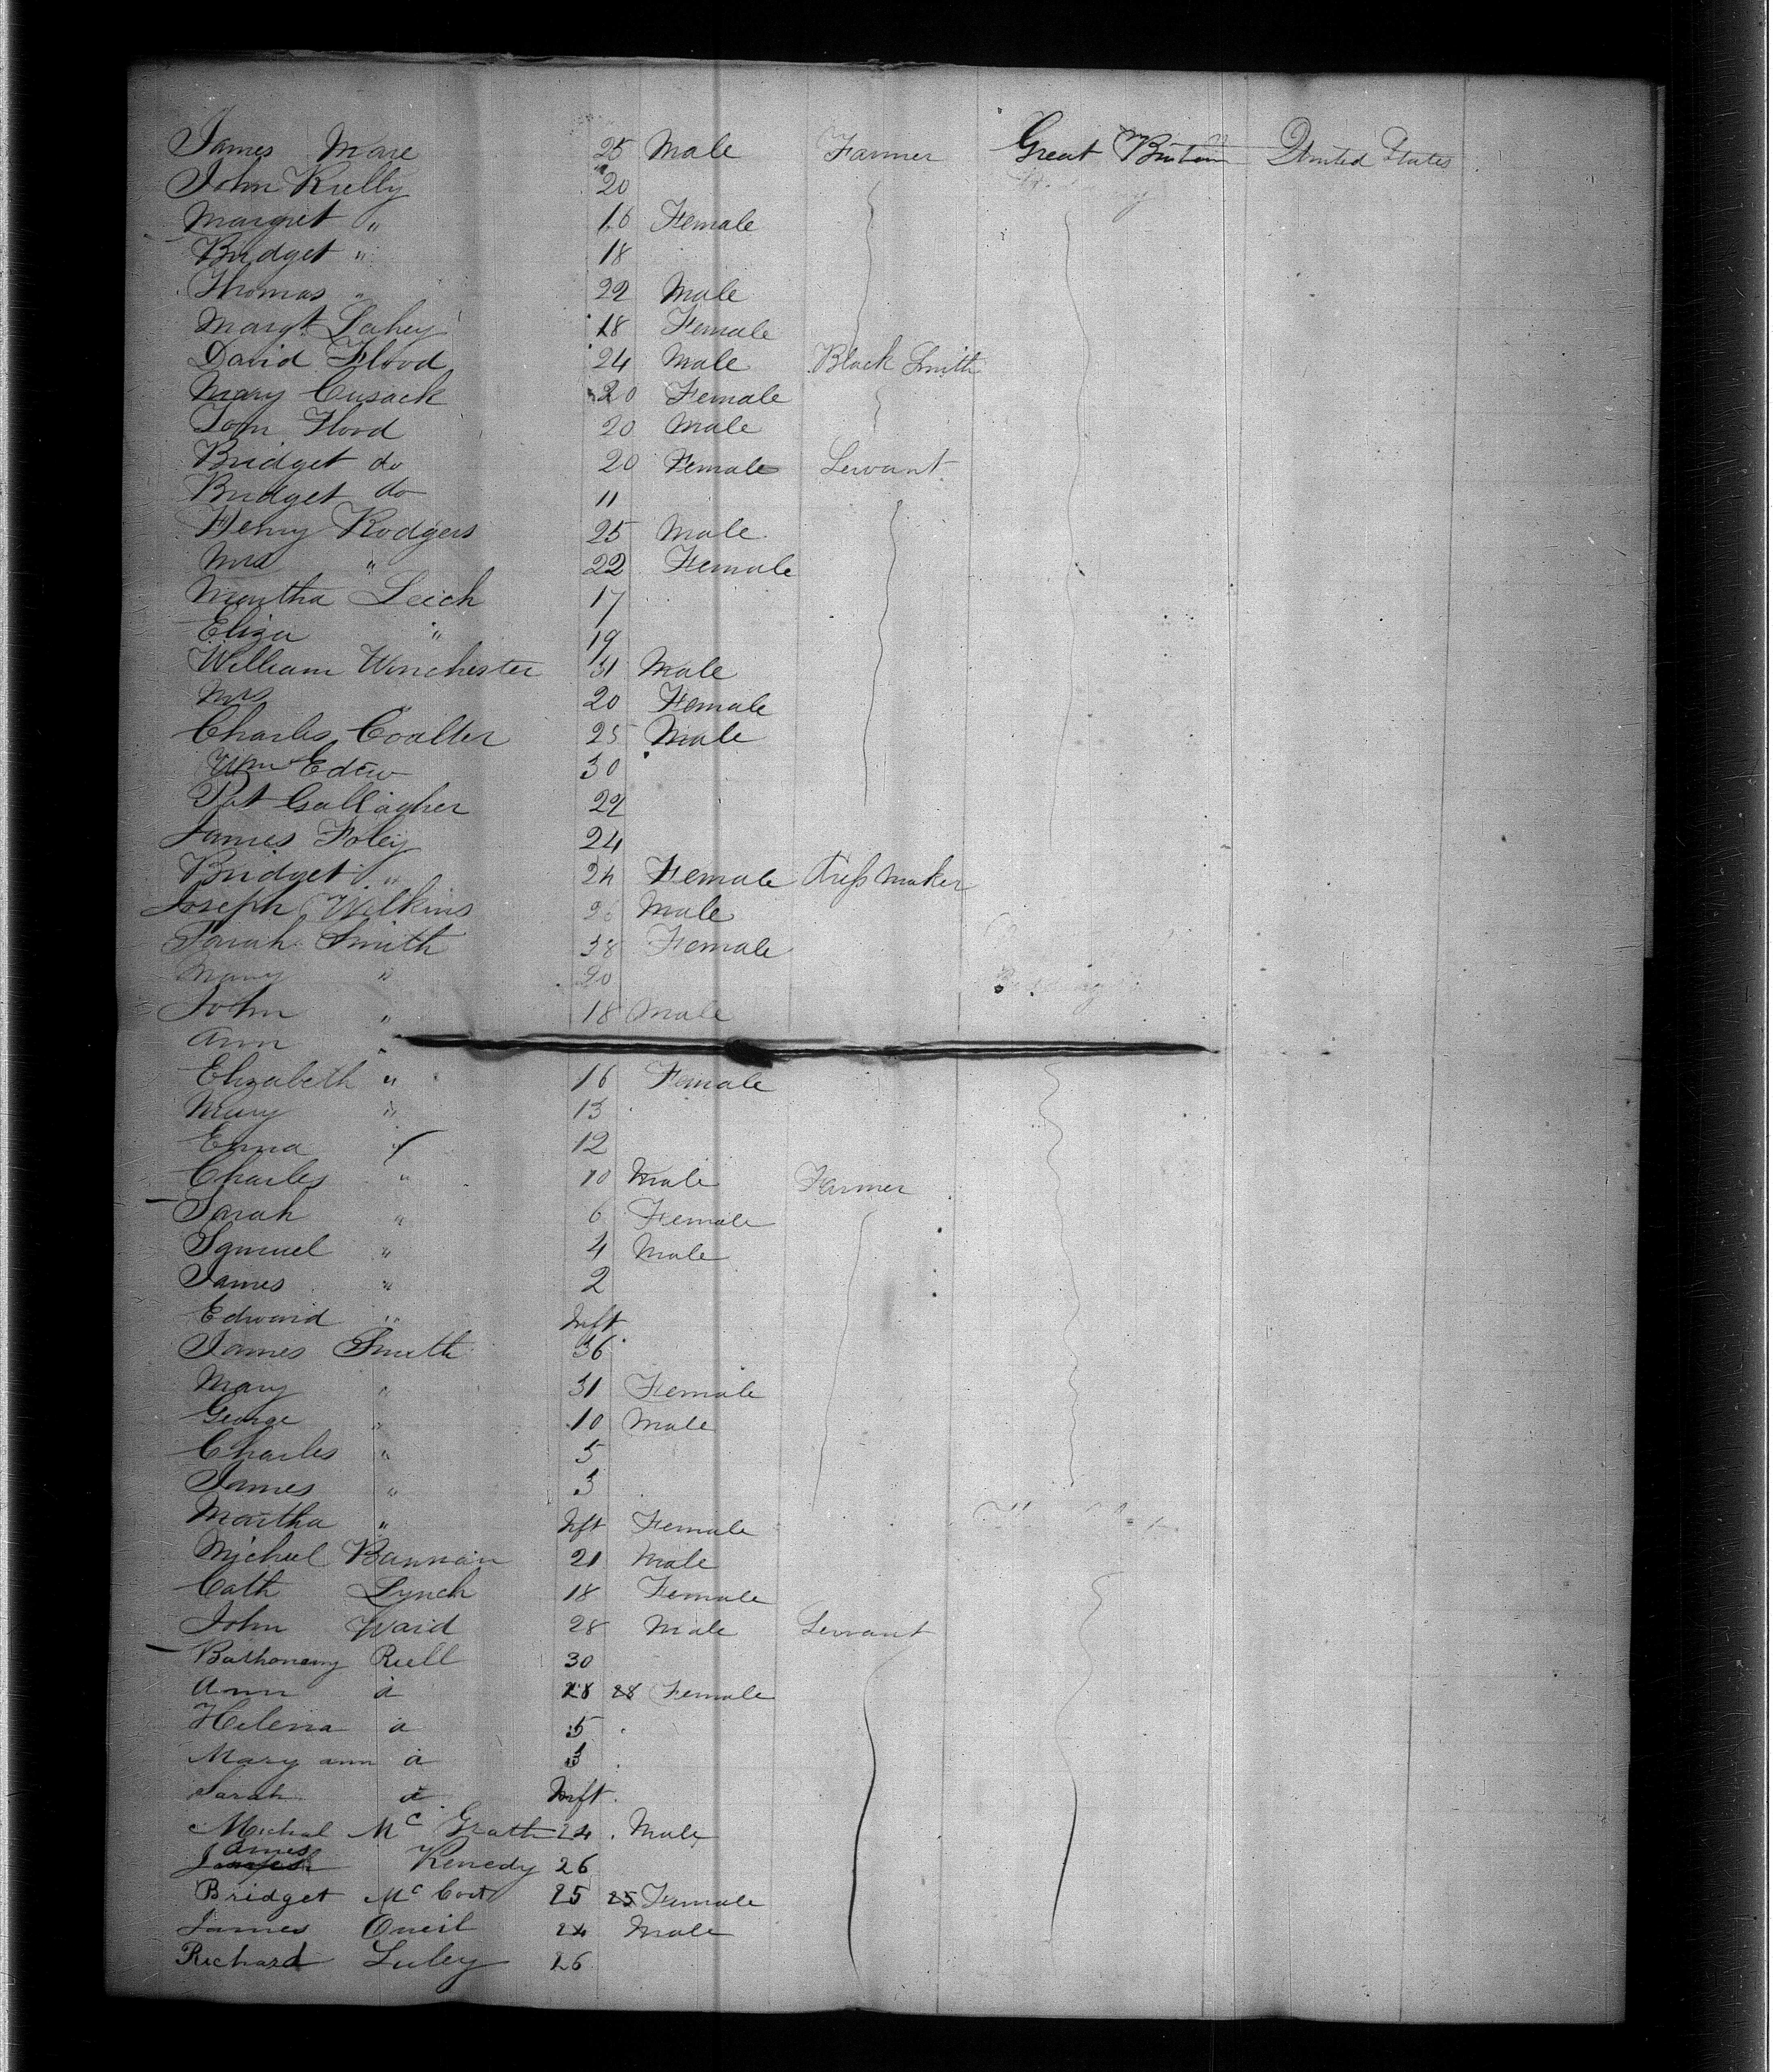 James Mare 25 Male Farmer Great Britain United States
John Kielly 20
Margret " 16 Female
Bridget " 18
Thomas " 22 Male
Margt Lahey 18 Female
David Flood 24 Male Black Smith
Mary Cusack 20 Female
Tom Flood 20 Male
Bridget do 20 Female Servant
Bridget do 11
Henry Rodgers 25 Male
Mrs " 22 Female
Martha Leich 17
Eliza " 19
William Winchester 31 Male
Mrs " 20 Female
Charles Coalter 25 Male
Wm 30
Pat Gallagher 22
James Foley 24
Bridget " 24 Female Dress Maker
Joseph Wilkins 26 Male
Sarah Smith 38 Female
Mary " 20
John " 18 Male
Ann "
Elizabeth " 16 Female
Mary " 13
Emma " 12
Charles " 10 Male Farmer
Sarah " 6 Female
Samuel " 4 Male
James " 2
Edward " Inft
James Smith 36
Mary " 31 Female
George " 10 Male
Charles " 5
James " 3
Martha " Inft Female
Micheel Bannan 21 Male
Cath Lynch 18 Female
John Waid 28 Male Servant
Bathonemy Riell 30
Ann d 28 28 Female
Helena d 5
Mary ann d 3
Sarah d Inft
Michal Mc Grath 24 Male
James Kenedy 26
Bridget Mc Cort 25 25 Female
James Oneil 24 Male
Richard Luley 26